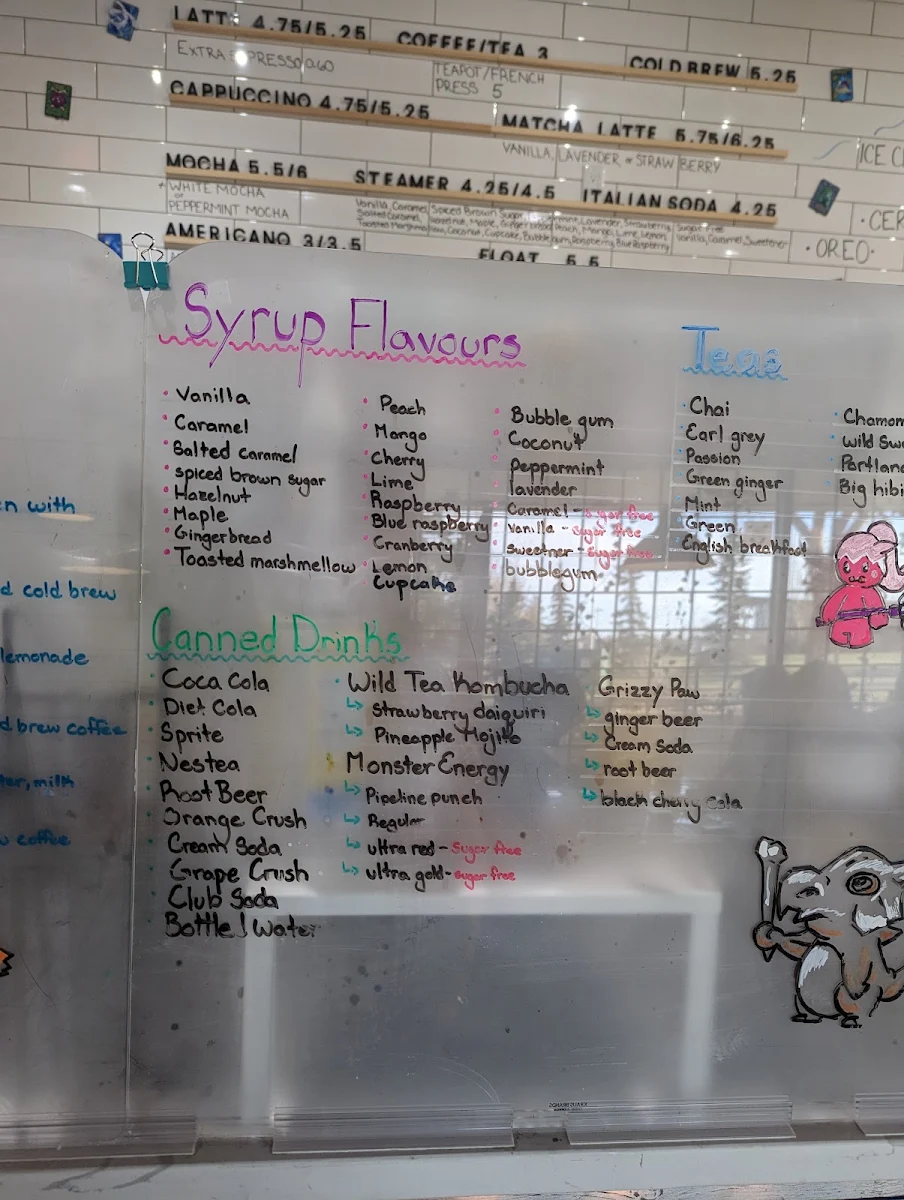 LATTE 4.75/5.25
EXTRA ESPRESSO 0.60
COFFEE/TEA 3
TEAPOT/FRENCH
PRESS 5
COLD BREW 5.25
CAPPUCCINO 4.75/5.25
MATCHA LATTE 5.75/6.25
VANILLA, LAVENDER or STRAWBERRY
ICE C
MOCHA 5.5/6
WHITE MOCHA
or
PEPPERMINT MOCHA
STEAMER 4.25/4.5
ITALIAN SODA 4.25
Vanilla, Caramel, Spiced Brown Sugar, Peppermint, Lavender, Strawberry,
Salted Caramel, Hazelnut, Maple, Gingerbread, Peach, Mango, Lime, Lemon
Coconut, Cupcake, Bubblegum, Raspberry, Blue Raspberry
Sugar Free
Vanilla, Caramel, Sweetner
• CER
• OREO •
AMERICANO 3/3.5
FLOAT 5.5
Syrup Flavours
• Vanilla
• Caramel
• Salted caramel
• spiced brown sugar
• Hazelnut
• Maple
• Gingerbread
• Toasted marshmellow
• Peach
• Mango
• Cherry
• Lime
• Raspberry
• Blue raspberry
• Cranberry
• Lemon
Cupcake
• Bubble gum
• Coconut
• peppermint
• lavender
• Caramel - sugar free
• Vanilla - sugar free
• sweetner - sugar free
• bubblegum
Teas
• Chai
• Earl grey
• Passion
• Green ginger
• Mint
• Green
• English breakfast
• Chamom
• Wild Swe
• Portland
• Big hibi
n with
d cold brew
lemonade
d brew coffee
ter, milk
w coffee
Canned Drinks
• Coca Cola
• Diet Cola
• Sprite
• Nestea
• Root Beer
• Orange Crush
• Cream Soda
• Grape Crush
• Club Soda
• Bottled Water
• Wild Tea Kombucha
↳ Strawberry daiquiri
↳ Pineapple Mojito
• Monster Energy
↳ Pipeline punch
↳ Regular
↳ ultra red - Sugar free
↳ ultra gold - sugar free
Grizzy Paw
↳ ginger beer
↳ Cream Soda
↳ root beer
↳ black cherry cola